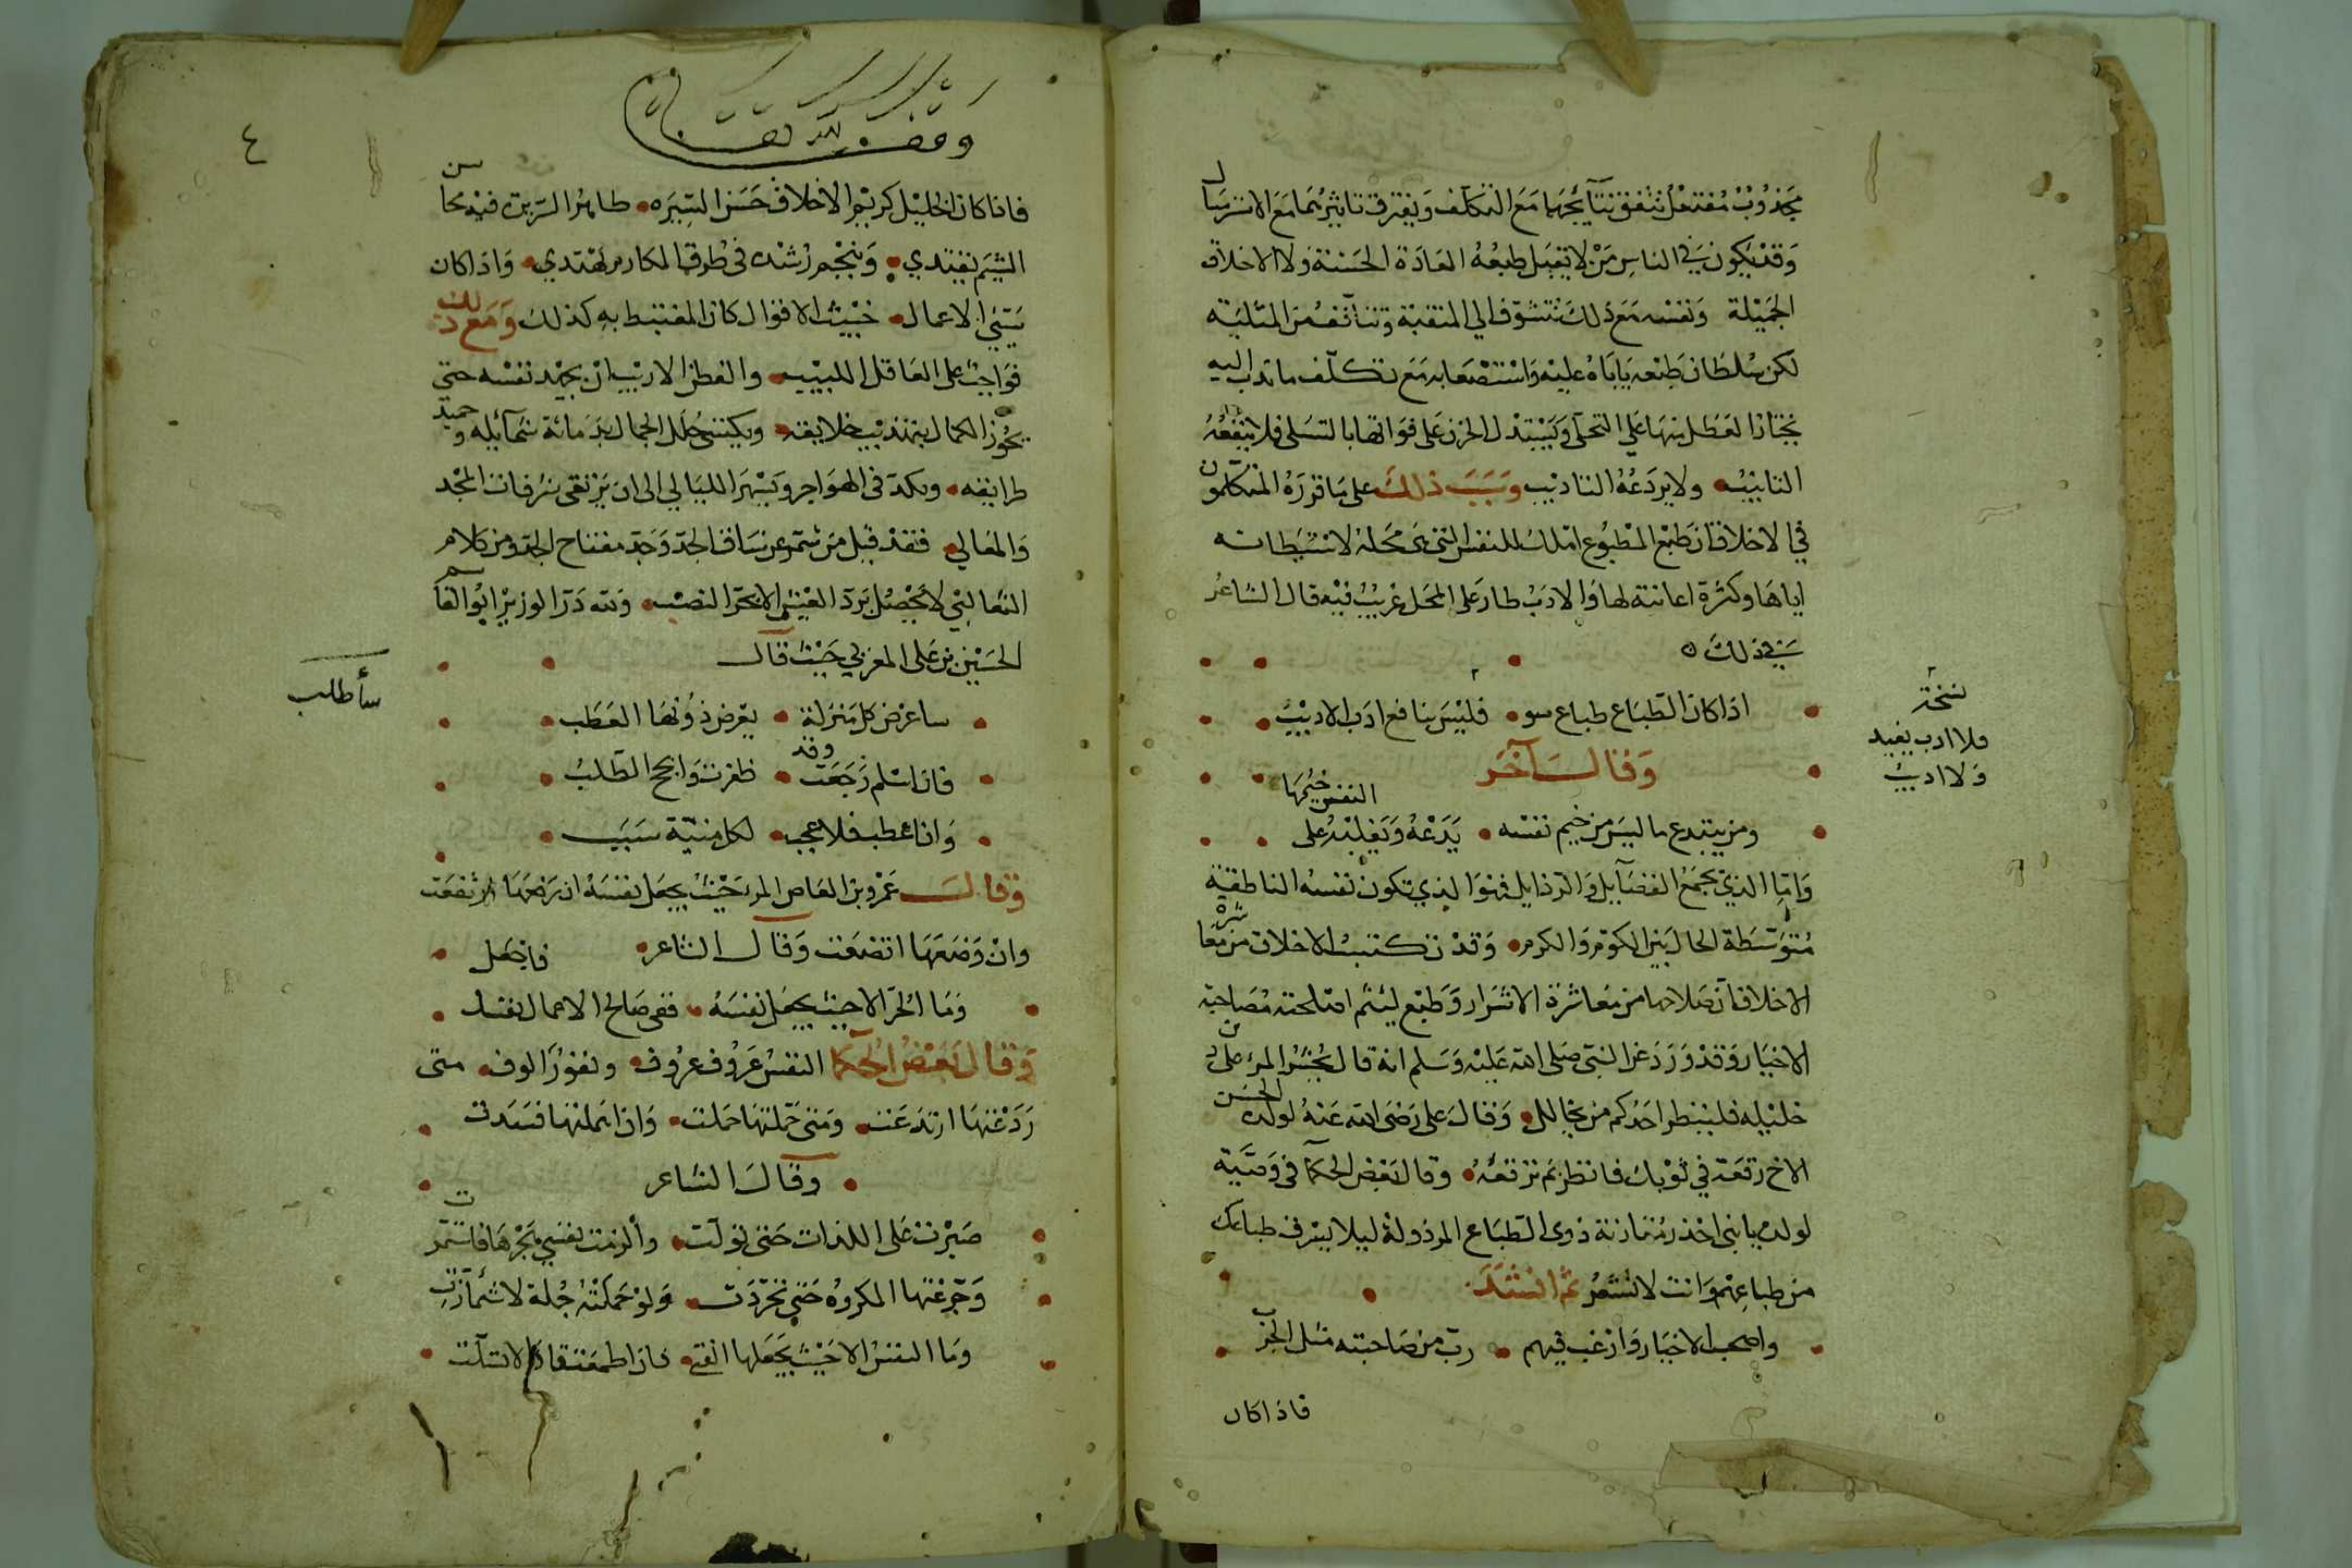 مجذوب مفتعل تتفق نتائجهما مع التكلف ويفترق تاثيرهما مع الاسترسال
وقد يكون في الناس من لا يقبل طبعه العادة الحسنة ولا الاخلاق
الجميلة ونفسه مع ذلك تتشوف الي المنقبة وتتأنف من المثلبة
لكن سلطان طبعه ياباه عليه واستصعابه مع تكلف ما ندب اليه
يختار العطل منها علي التحلي ويستبدل الحزن على فواتها بالتسلي فلا ينفعه
التانيب ولا يردعه التاديب وسبب ذلك على ما قرره المتكلمون
في الاخلاق ان طبع المطبوع املك للنفس التي هي محله لاستيطانه
اياها وكثرة اعانته لها والادب طار على المحل غريب فيه قال الشاعر
في ذلك
اذا كان الطباع طباع سو فليس بنافع ادب الاديب
نسخة
فلا ادب يفيد
ولا اديب
وقال آخر
ومن يبتدع ما ليس من خيم نفسه يدعه ويغلبه على النفس خيمها
واما الذي يجمع الفضآيل والرذايل فهو الذي تكون نفسه الناطقة
متوسطة الحال بين اللوم والكرم وقد تكتسب الاخلاق من معاشره
الاخلا فان صلاحها من معاشرة الاشرار وطبع لئيم اصلحته مصاحبة
الاخيار وقد ورد عن النبي صلى الله عليه وسلم انه قال المرء على دين
خليله فلينظر احدكم من يخالل وقال على رضى الله عنه لولده الحسن
الاخ رقعة في ثوبك فانظر بم ترقعه وقال بعض الحكما في وصية
لولده يا بنى احذر مقارنة ذوى الطباع المرذولة ليلا يسرق طباعك
من طباعهم وانت لا تشعر ثم انشد
واصحب الاخيار وارغب فيهم رب من صاحبته مثل الجرب
فاذا كان
وقف لله تعالى
٤
فاذا كان الخليل كريم الاخلاق حسن السيره طاهر السريرة فبه في محاسن
الشيم يقتدي وبنجم رشده في طرق المكارم يهتدي واذا كان
سيئ الاعمال خبيث الاقوال كان المغتبط به كذلك ومع ذلك
فواجب على العاقل اللبيب والفطن الاريب ان يجهد نفسه حتى
يحوز الكمال بتهذيب خلايقه ويكتسي حلل الجمال بدماثة شمآئله وحميد
طرايقه ويكد في الهواجر ويسهر الليالي الى ان يرتقى شرفات المجد
والمعالي فقد قيل من شمر عن ساق الجد وجد مفتاح الجد ومن كلام
الثعالبي لا يحصل برد العيش الا بحر النصب ولله در الوزير ابو القاسم
الحسين بن على المغربي حيث قال
ساعرض كل منزلة يعرض دونها العطب
سأطلب
فان اسلم رجعت وقد ظفرت وانجح الطلب
وان اعطب فلا عجب لكل منية سبب
وقال عمرو بن العاص المرء حيث يجعل نفسه ان رفعها ارتفعت
وان وضعها اتضعت وقال الشاعر
وما الحر الا حيث يجعل نفسه ففى صالح الاعمال نفسك فاجعل
وقال بعض الحكما النفس عروف عزوف ونفور الوف متى
ردعتها ارتدعت ومتى حملتها حملت وان اهملتها فسدت
وقال الشاعر
صبرت على اللذات حتى تولت والزمت نفسي هجرها فاستمرت
وجرعتها المكروه حتى تجردت ولو حملته جملة لاشمأزت
وما النفس الا حيث يجعلها الفتى فان اطمعت تاقت والا تسلت